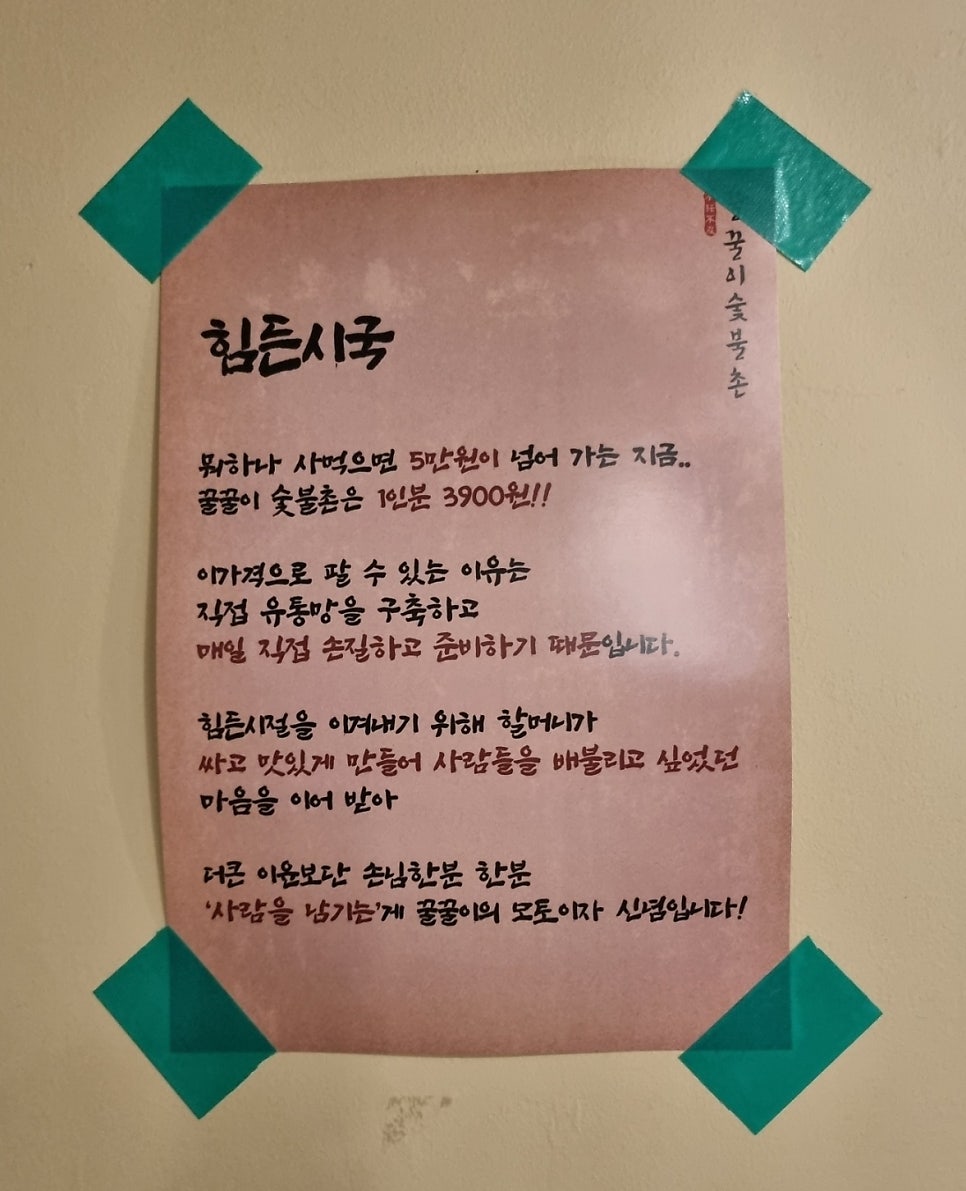 꿀이숯불촌
힘든시국
뭐하나 사먹으면 5만원이 넘어 가는 지금..
꿀꿀이 숯불촌은 1인분 3900원!!
이가격으로 팔 수 있는 이유는
직접 유통망을 구축하고
매일 직접 손질하고 준비하기 때문입니다.
힘든시절을 이겨내기 위해 할머니가
싸고 맛있게 만들어 사람들을 배불리고 싶었던
마음을 이어 받아
더큰 이윤보단 손님한분 한분
'사람을 남기는'게 꿀꿀이의 모토이자 신념입니다!